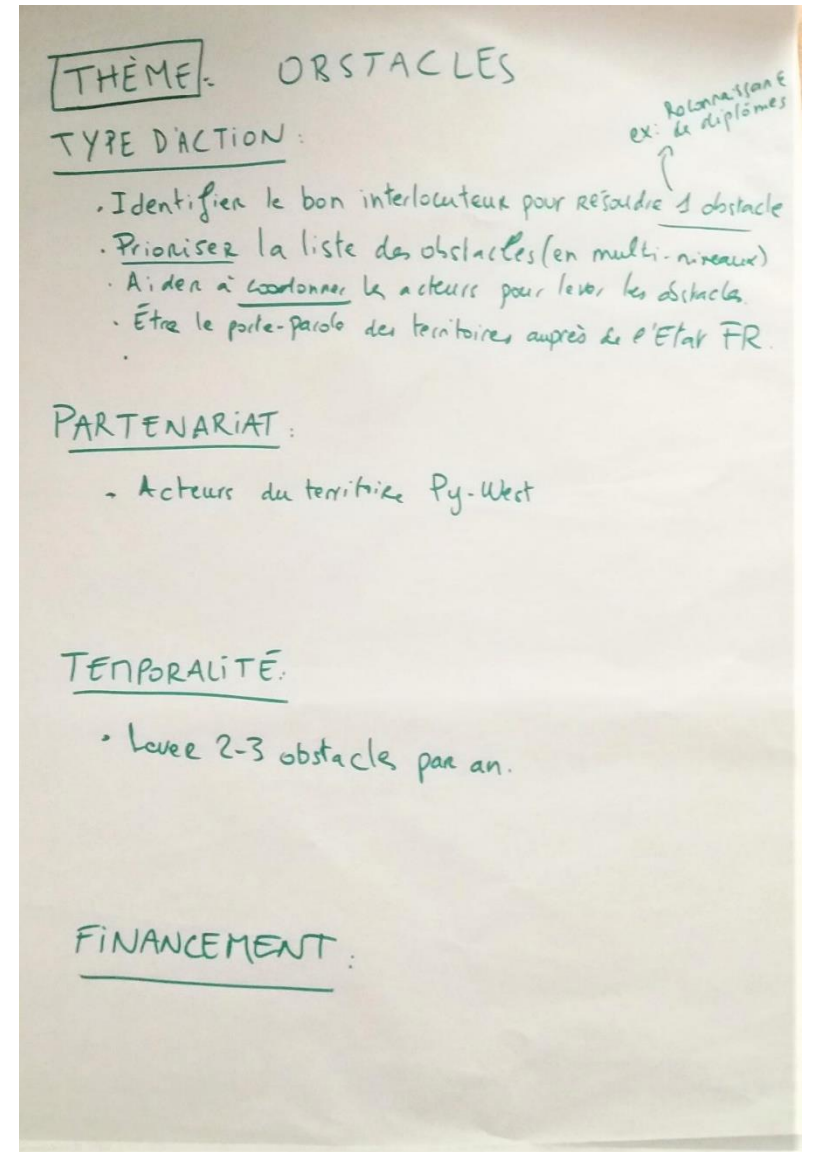 THÈME: OBSTACLES
Reconnaissance
ex: de diplômes
TYPE D'ACTION:
. Identifier le bon interlocuteur pour résoudre 1 obstacle
. Prioriser la liste des obstacles (en multi-niveaux)
. Aider à coordonner les acteurs pour lever les obstacles.
. Être le porte-parole des territoires auprès de l'Etat FR.
.
PARTENARIAT:
- Acteurs du territoire Py-West
TEMPORALITÉ:
. Lever 2-3 obstacles par an.
FINANCEMENT: